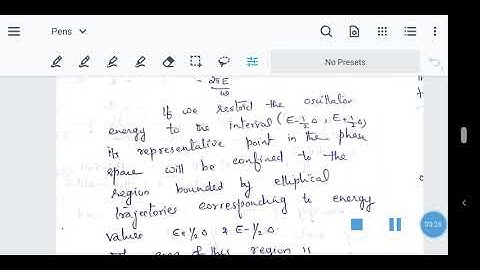 Pens
No Presets
2πE
ω
If we restrid the oscillator
energy to the interval (E-½Δ, E+½Δ)
its representative point in the phase
space will be confined to the
region bounded by elliptical
trajectories corresponding to energy
values E+½Δ & E-½Δ
area of this region is
03:28